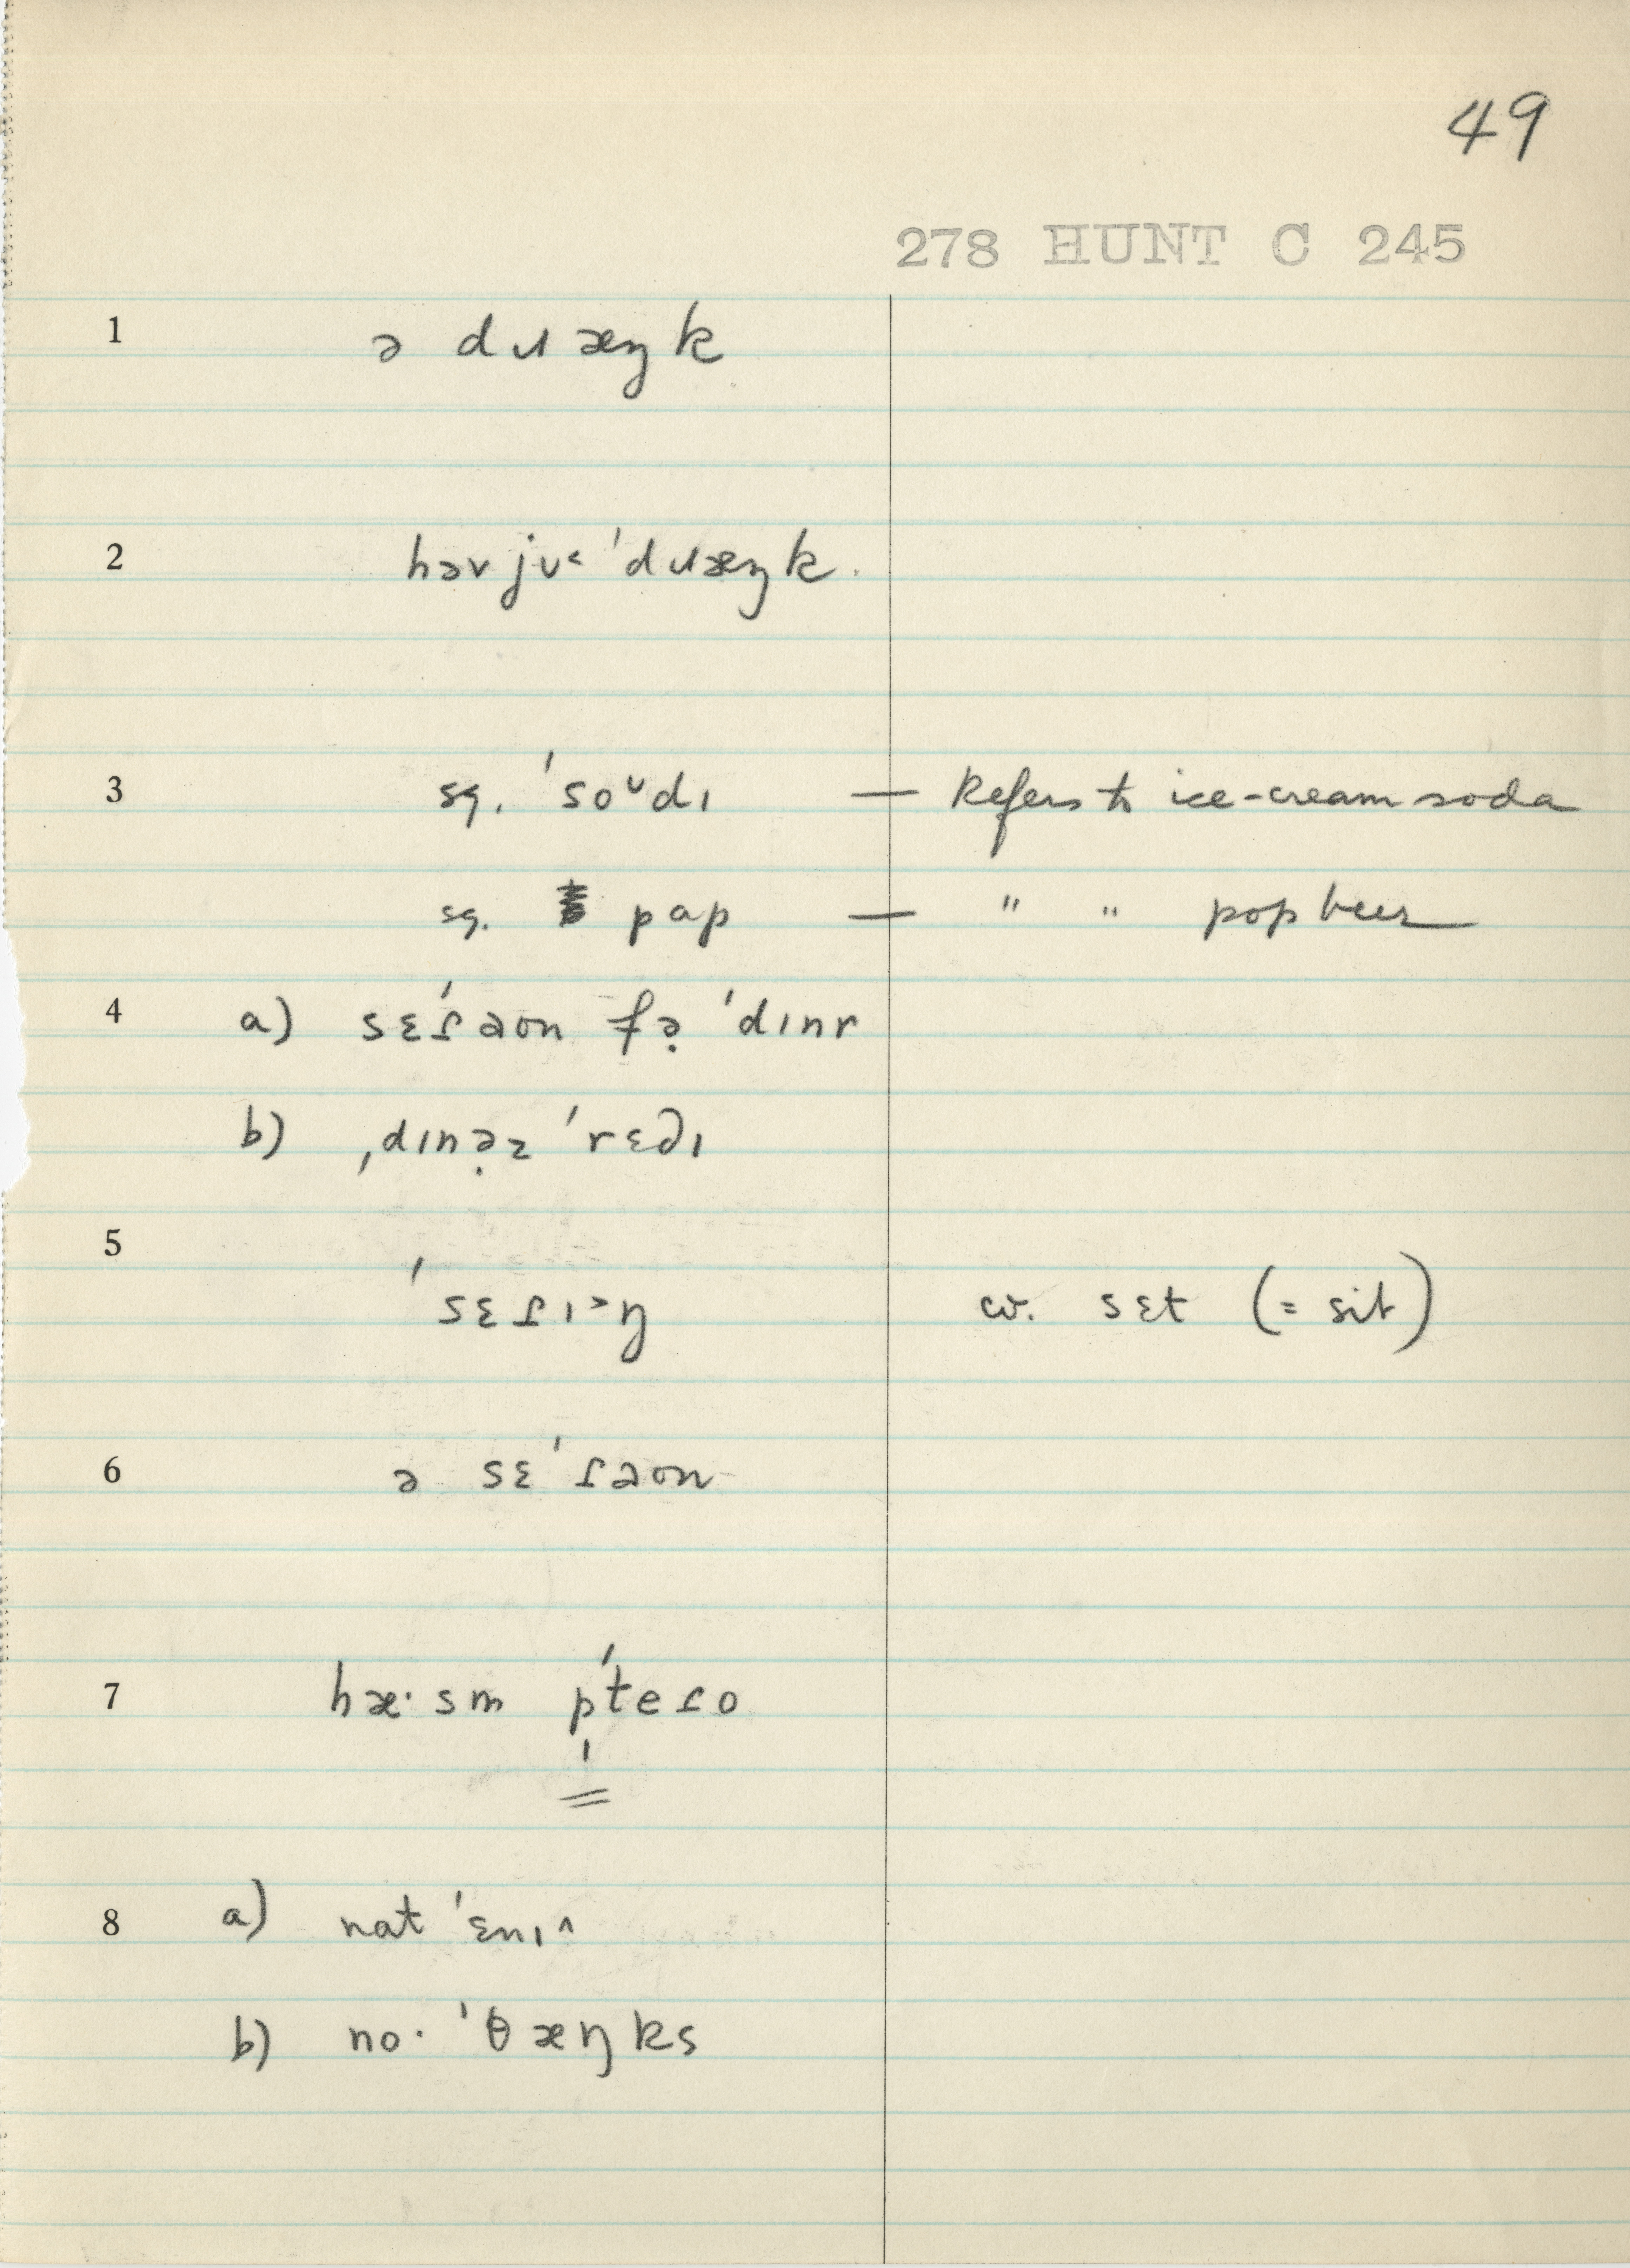 49
278 HUNT C 245
1 ə dɹæŋk
2 həv jʊ˂ ˈdɹæŋk.
3 sg. ˈsoᶷdɪ — Refers to ice-cream soda
sg. pap — " " pop beer
4 a) sɛˈɾaʊn fə̣ ˈdɪnr
b) ˌdɪnə̣z ˈrɛdɪ
5 ˈsɛɾɪ˃ŋ cv. sɛt (= sit)
6 ə sɛˈɾaʊn
7 hæ·sm pˈteɾo
8 a) nat ˈɛnɪ^
b) no· ˈθæŋks